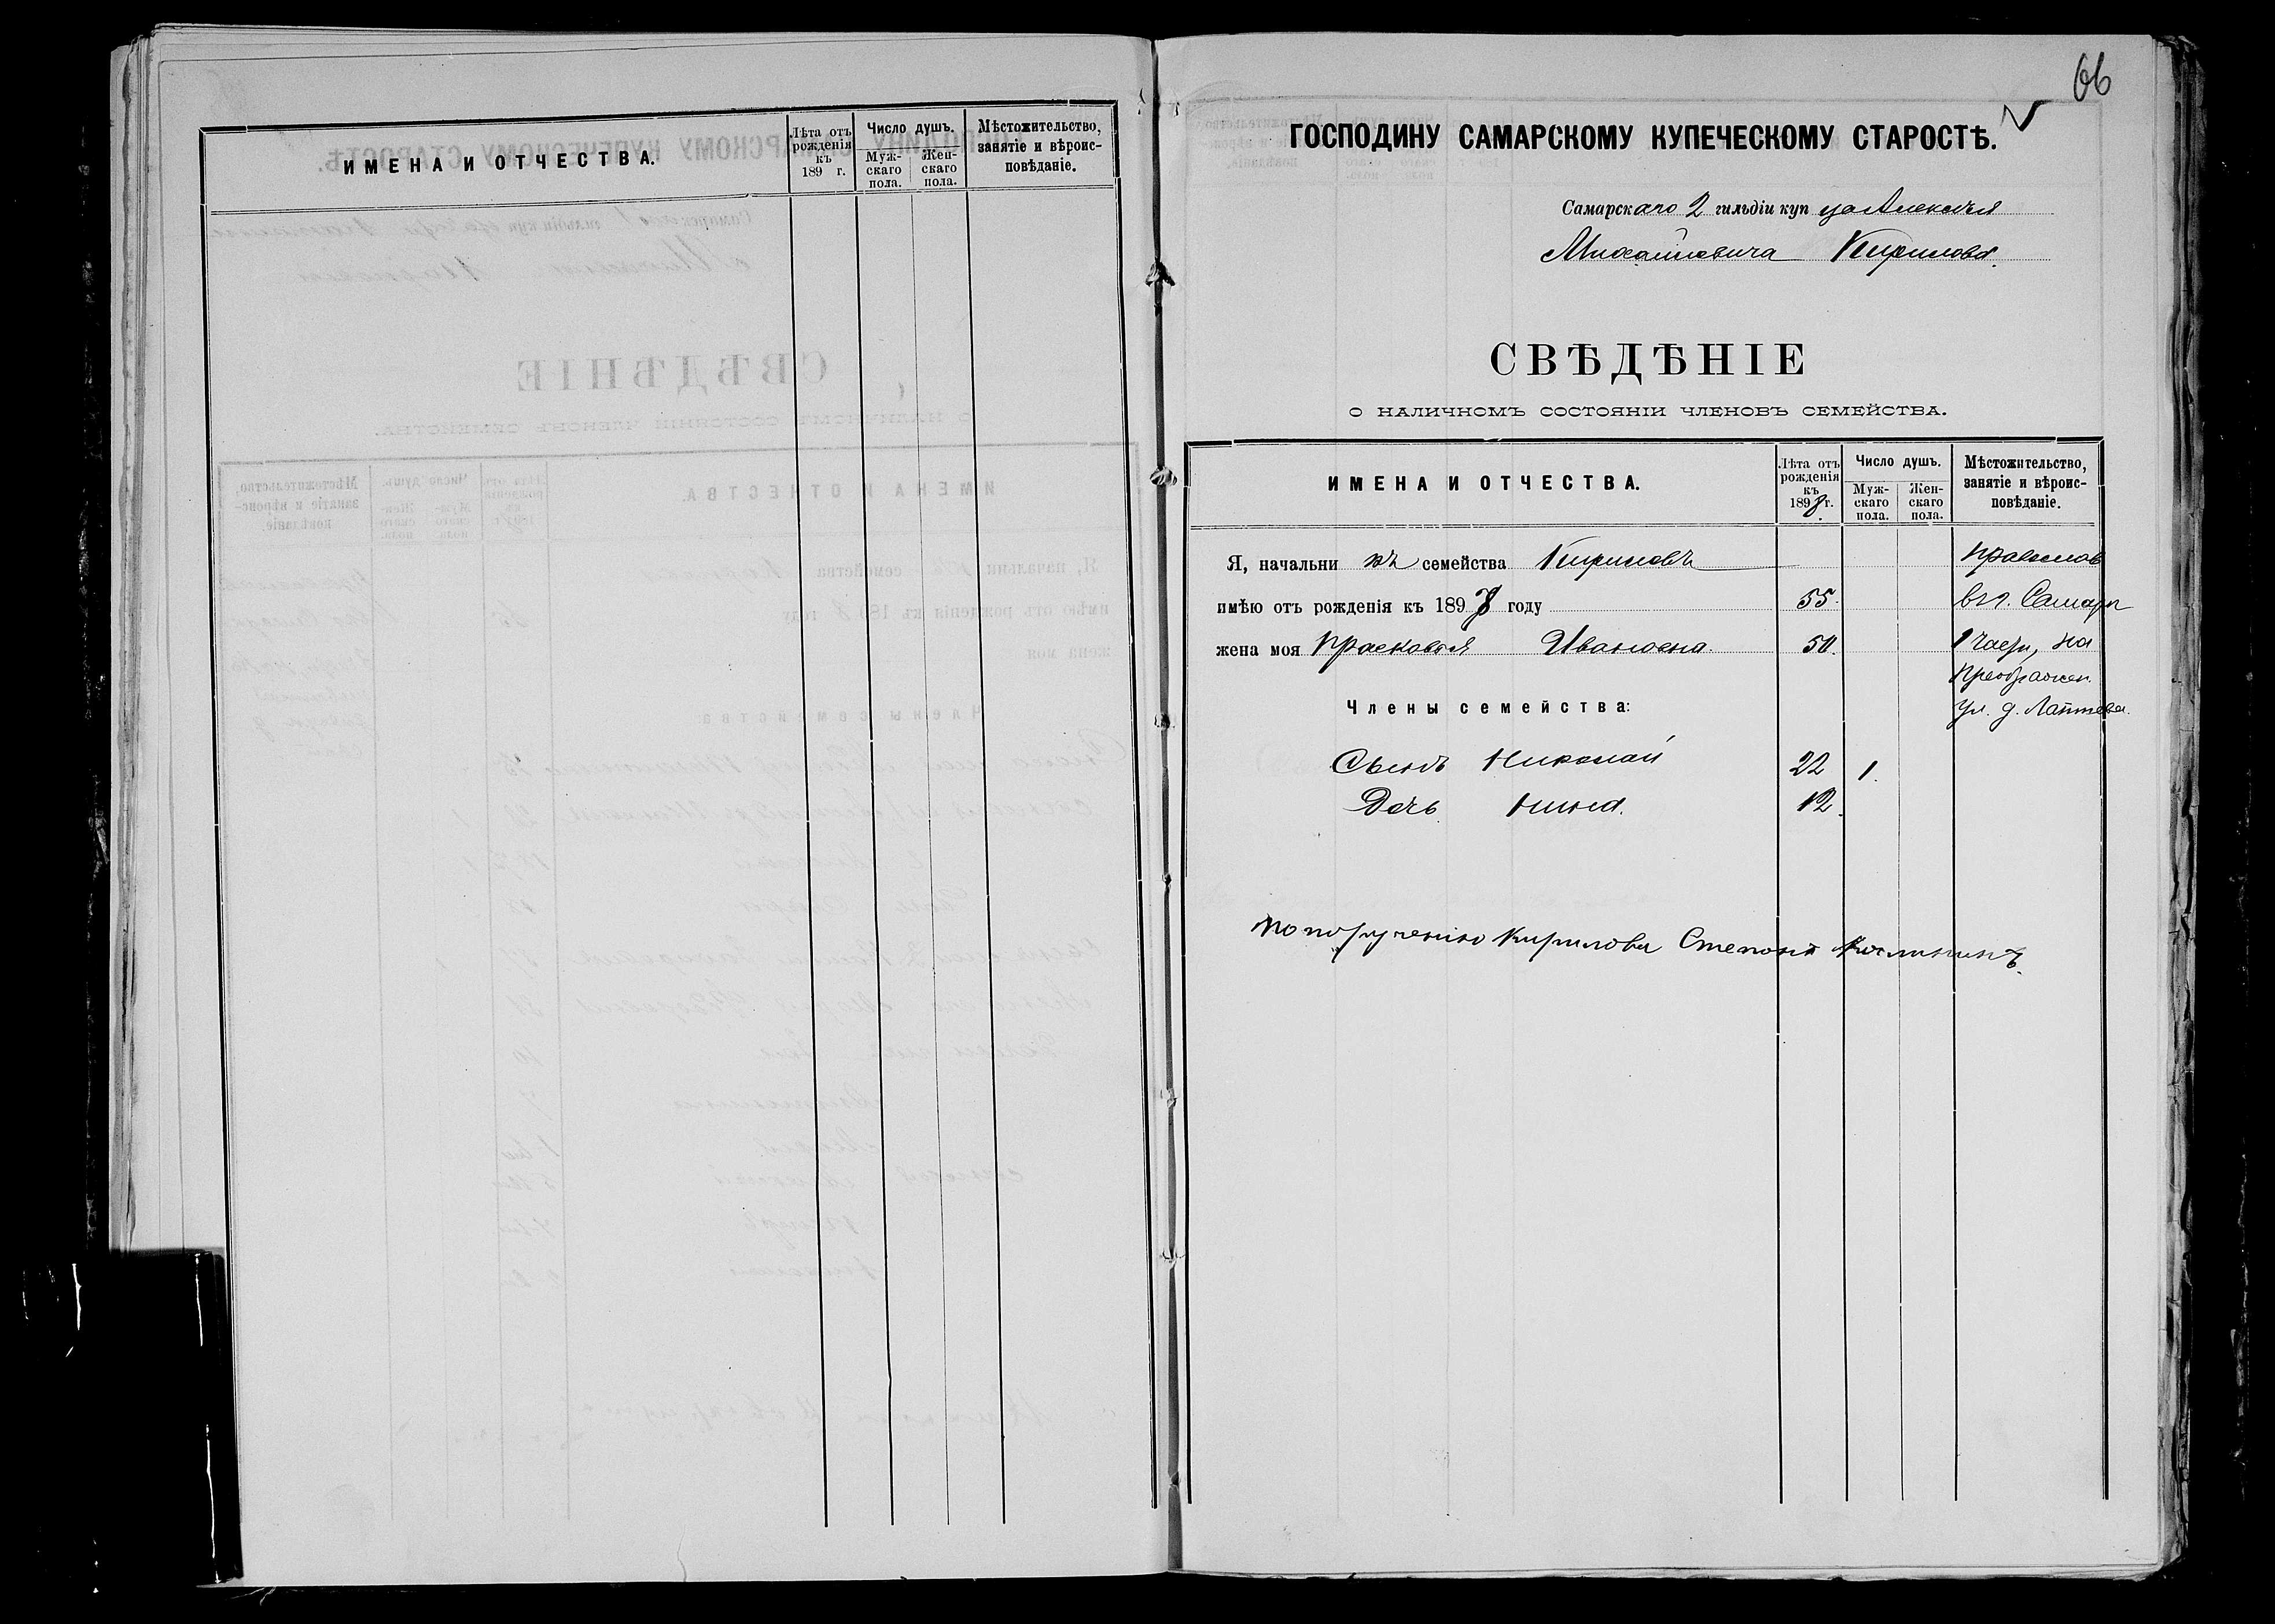 ИМЕНА И ОТЧЕСТВА.
Лѣта отъ рожденія къ 189 г.
Число душъ.
Муж-скаго пола.
Жен-скаго пола.
Мѣстожительство, занятіе и вѣроис-повѣданіе.
66
ГОСПОДИНУ САМАРСКОМУ КУПЕЧЕСКОМУ СТАРОСТѢ.
Самарскаго 2 гильдіи купца Алексѣя
Михайловича Кирилова.
СВѢДѢНІЕ
О НАЛИЧНОМЪ СОСТОЯНІИ ЧЛЕНОВЪ СЕМЕЙСТВА.
ИМЕНА И ОТЧЕСТВА.
Лѣта отъ рожденія къ 1898 г.
Число душъ.
Муж-скаго пола.
Жен-скаго пола.
Мѣстожительство, занятіе и вѣроис-повѣданіе.
Я, начальникъ семейства Кириловъ православ
имѣю отъ рожденія къ 1898 году 55. въ г. Самарѣ
жена моя Прасковья Ивановна. 50. 1 части, на
Преображен.
Члены семейства: ул. д. Лаптева.
Сынъ Николай 22 1.
Дочь Нина. 12.
По порученію Кирилова Степанъ